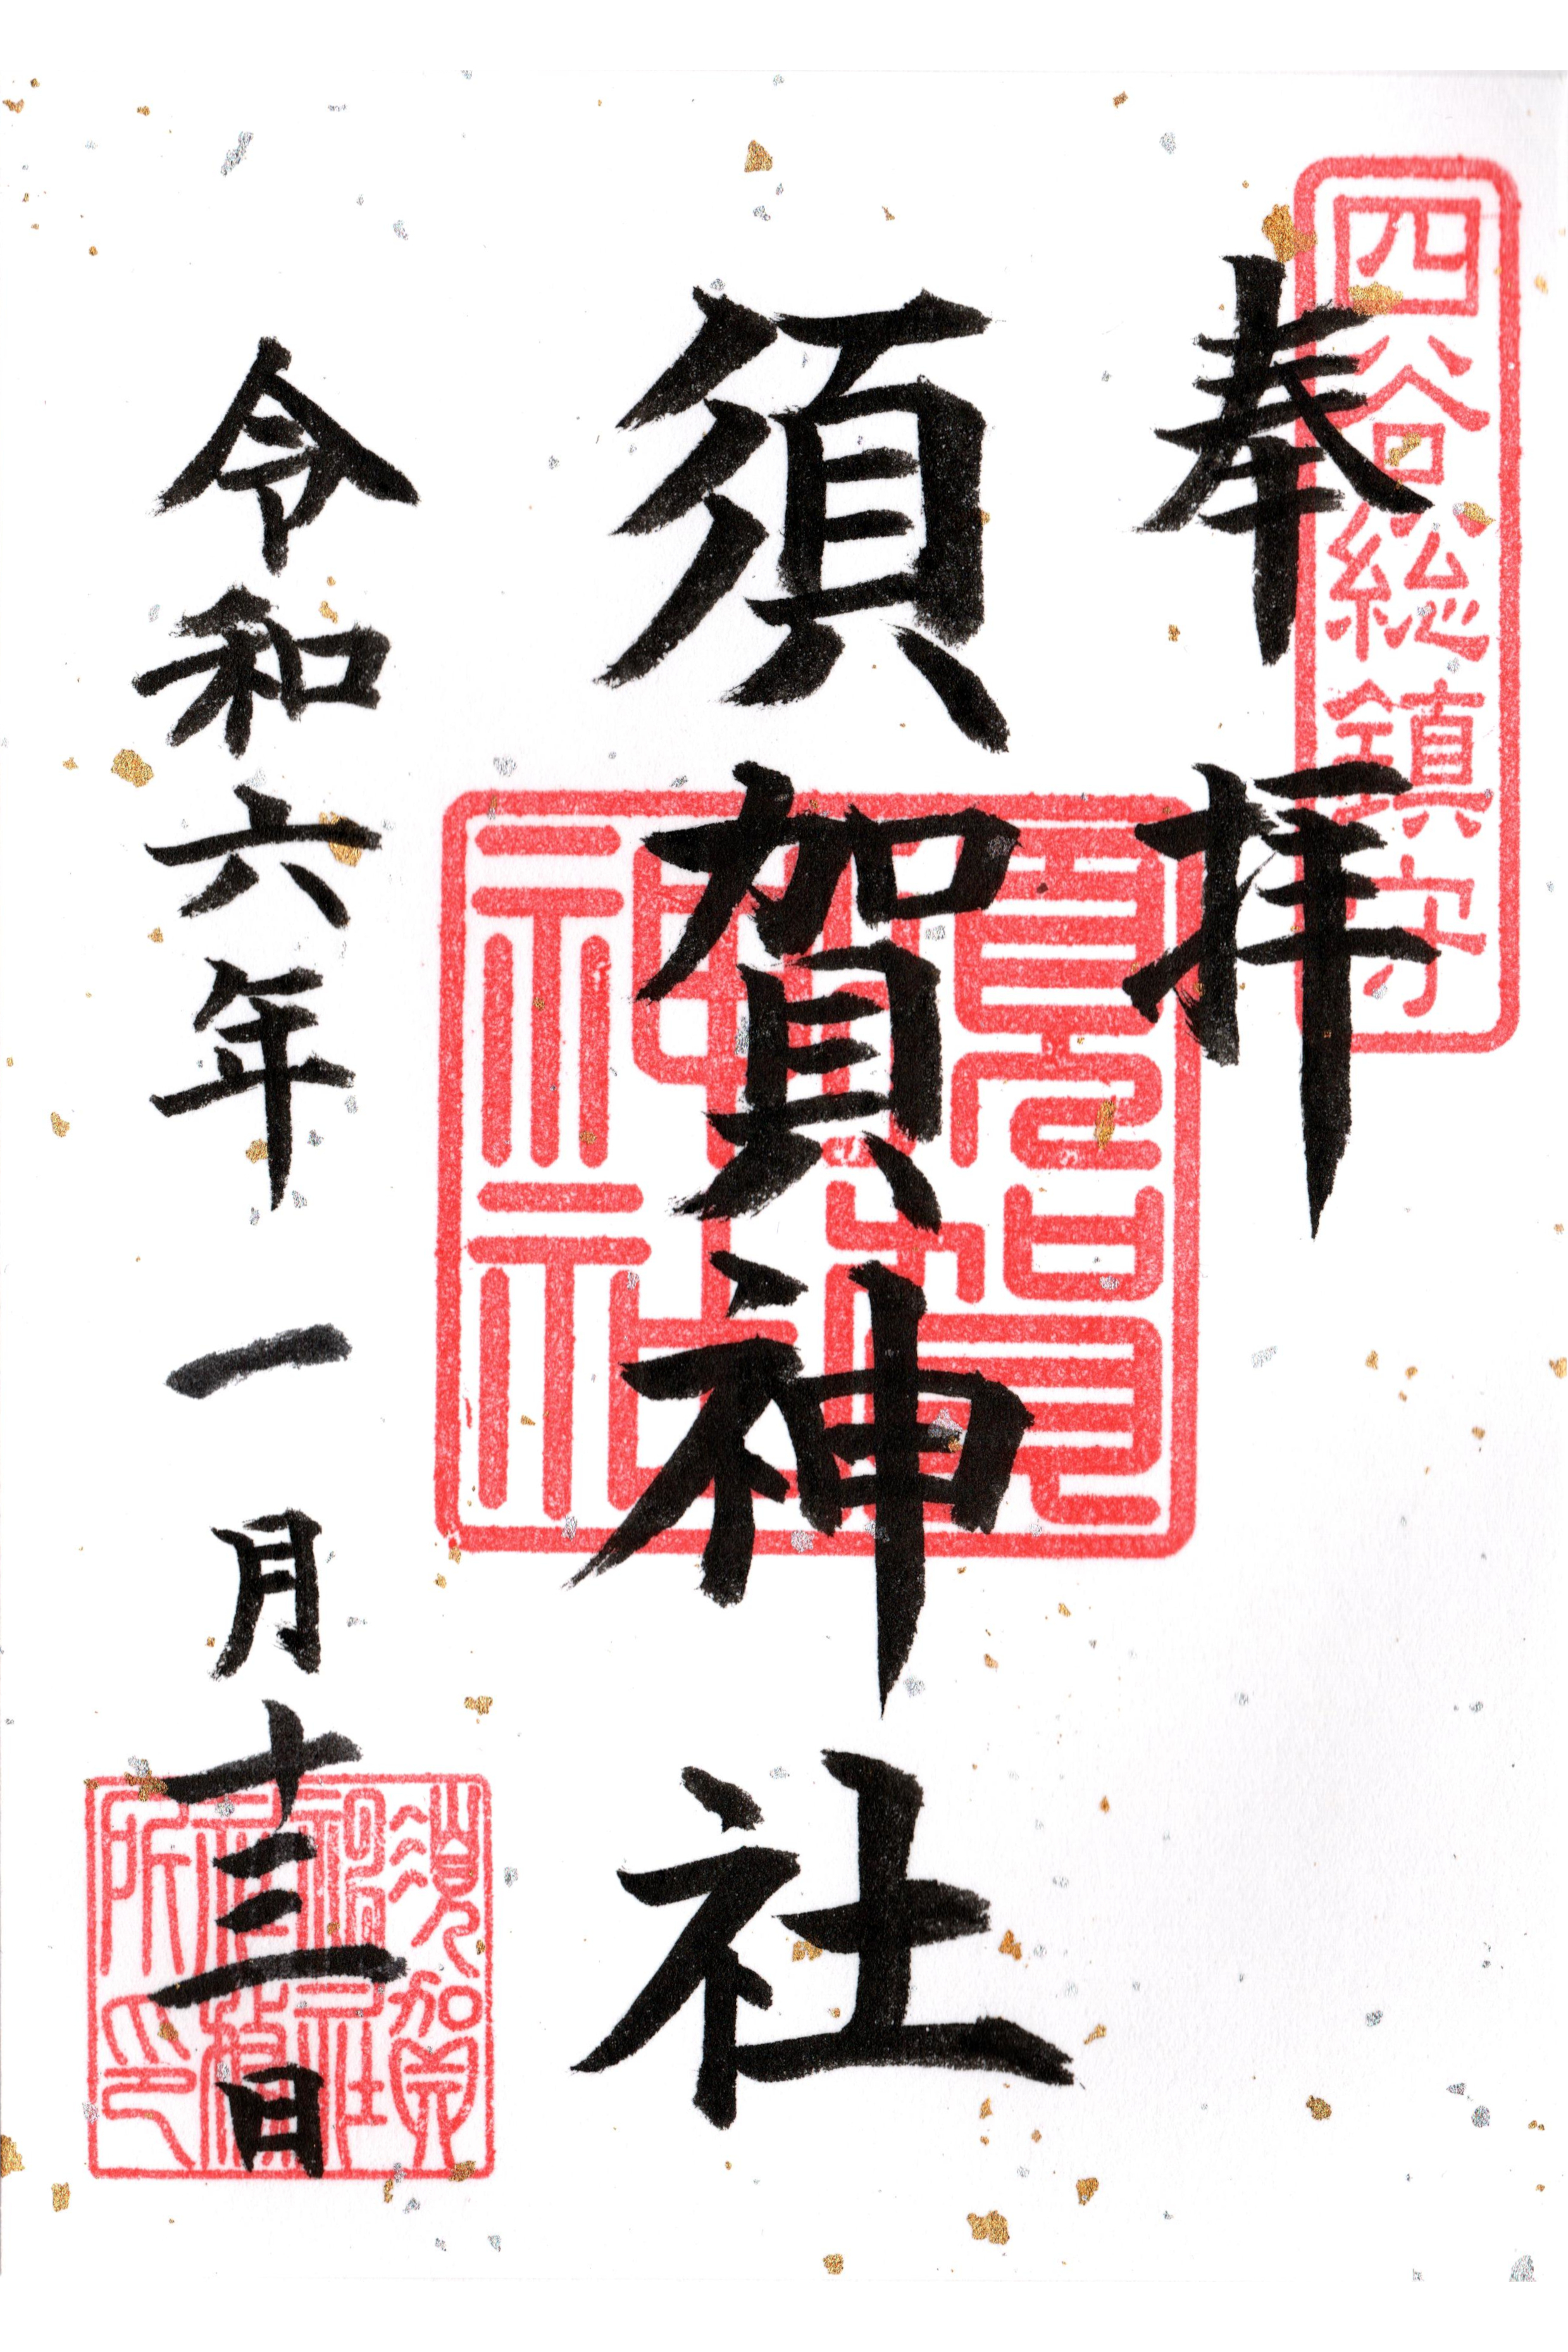 四谷総鎮守
奉拝
須賀神社
須賀神社
令和六年一月十三日
須賀神社社務所印